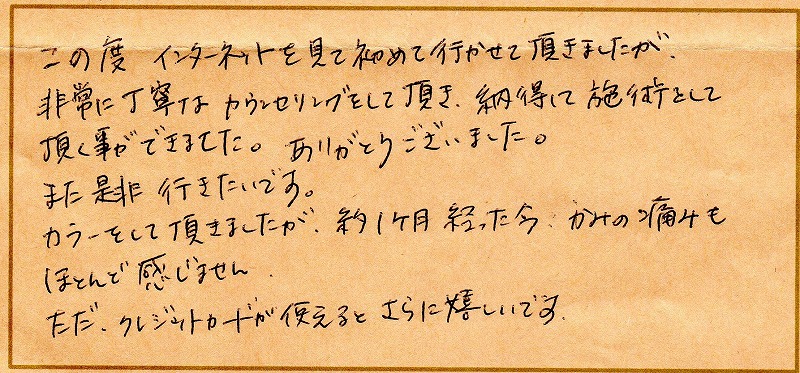 この度 インターネットを見て初めて行かせて頂きましたが、
非常に丁寧なカウンセリングをして頂き、納得して施術をして
頂く事ができました。ありがとうございました。
また是非 行きたいです。
カラーをして頂きましたが、約1ケ月 経った今、かみの痛みも
ほとんど感じません。
ただ、クレジットカードが使えるとさらに嬉しいです。